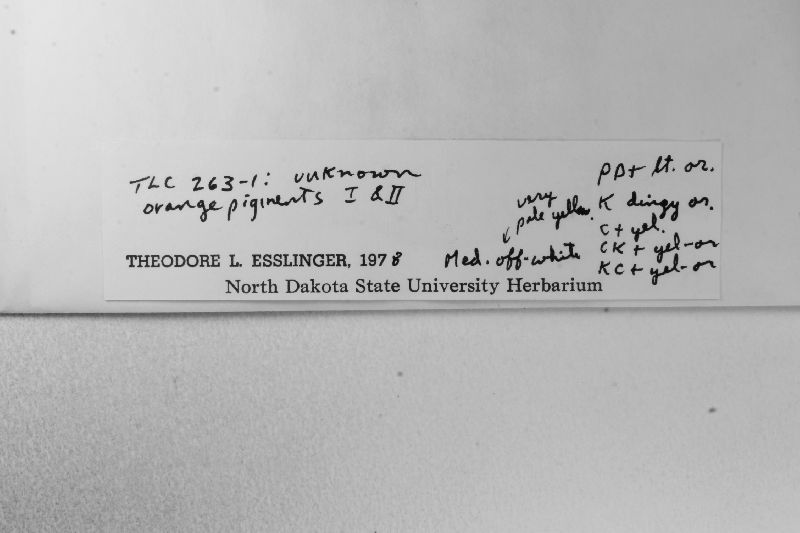 TLC 263-1: unknown
orange pigments I & II
THEODORE L. ESSLINGER, 1978
North Dakota State University Herbarium
very
pale yellow.
Med. off-white
PD+ lt. or.
K dingy or.
C+ yel.
CK + yel-or
KC + yel-or